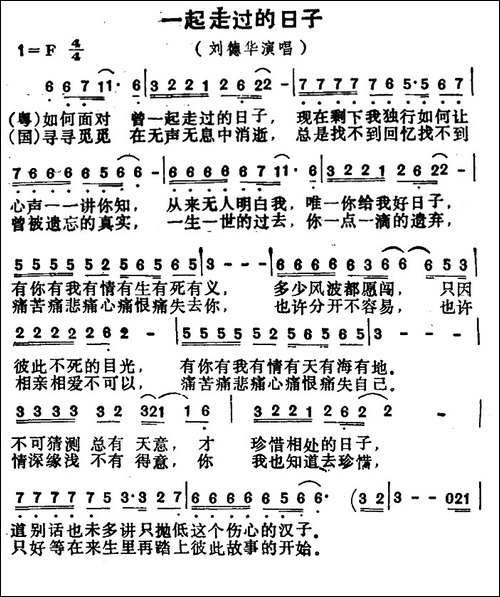 一起走过的日子
1=F 4/4 （刘德华演唱）
6 6 7 1 1· 6 | 3 2 2 1 2 6 2 2 - | 7 7 7 7 7 6 5· 5 6 7 |
（粤）如何面对 曾一起走过的日子， 现在剩下我独行如何让
（国）寻寻觅觅 在无声无息中消逝， 总是找不到回忆找不到
心声一一讲你知， 从来无人明白我，唯一你给我好日子，
曾被遗忘的真实， 一生一世的过去，你一点一滴的遗弃，
5 5 5 5 5 5 5 2 5 6 5 6 5 | 3 - - - | 6 6 6 6 6 6 3 6 6 6 5 3 |
有你有我有情有生有死有义， 多少风波都愿闯， 只因
痛苦痛悲痛心痛恨痛失去你， 也许分开不容易，也许
彼此不死的目光， 有你有我有情有天有海有地。
相亲相爱不可以， 痛苦痛悲痛心痛恨痛失自己。
3 3 3 3 3 2 3 2 1 1 6 | 3 2 2 1 2 6 2 2 - |
不可猜测 总有 天意，才 珍惜相处的日子，
情深缘浅 不有 得意，你 我也知道去珍惜，
道别话也未多讲只抛低这个伤心的汉子。
只好等在来生里再踏上彼此故事的开始。